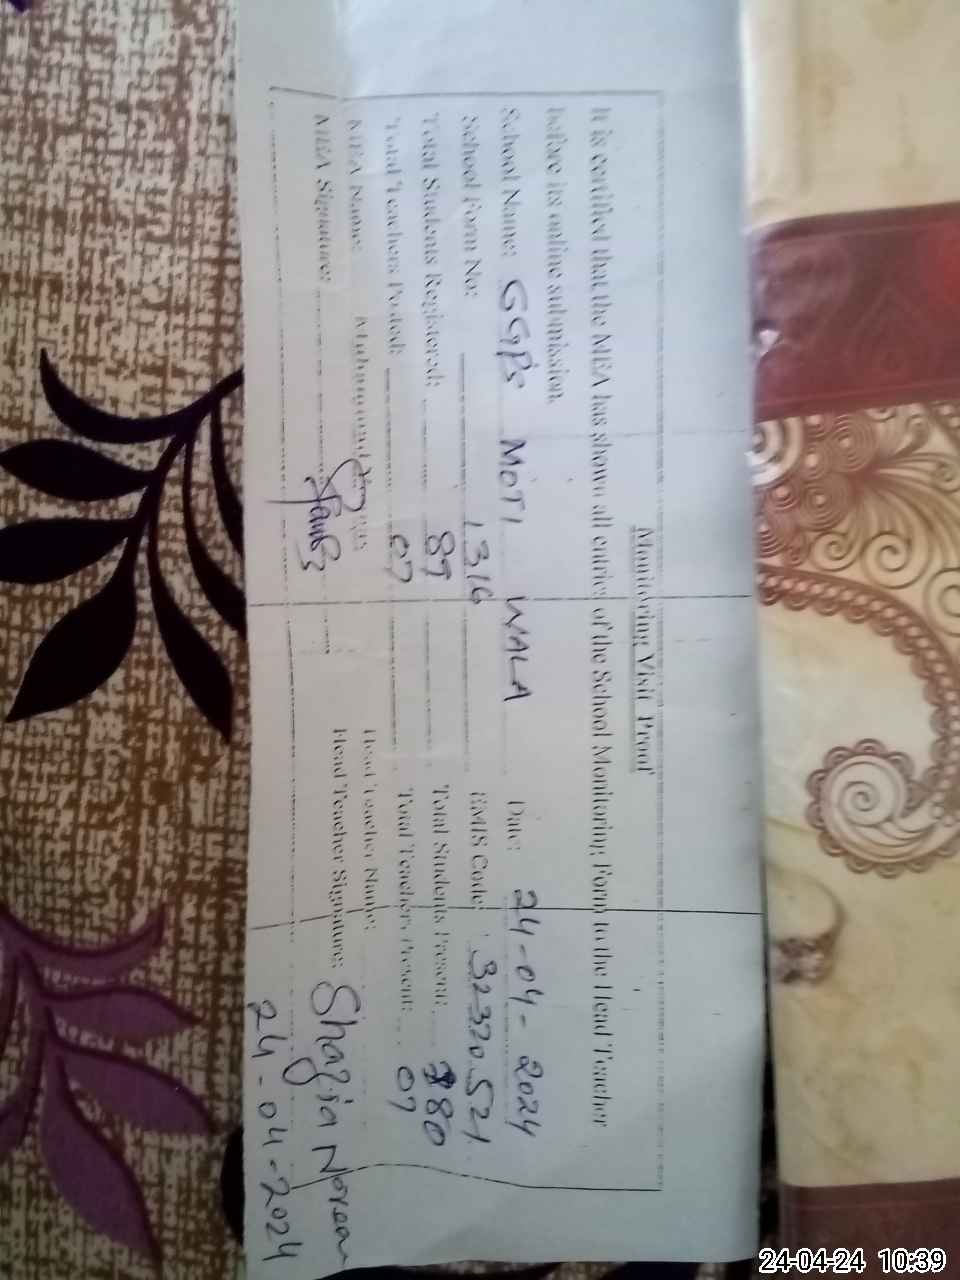 Monitoring Visit Proof
It is certified that the MEA has shown all entries of the School Monitoring Form to the Head Teacher
before its online submission.
School Name: GGPS MOTI WALA Date: 24-04-2024
School Form No: 1316 EMIS Code: 32320521
Total Students Registered: 89 Total Students Present: 80
Total Teachers Posted: 07 Total Teachers Present: 07
MEA Name: Muhammad Head Teacher Name:
MEA Signature: Head Teacher Signature: Shazia Noreen
24-04-2024
24-04-24 10:39